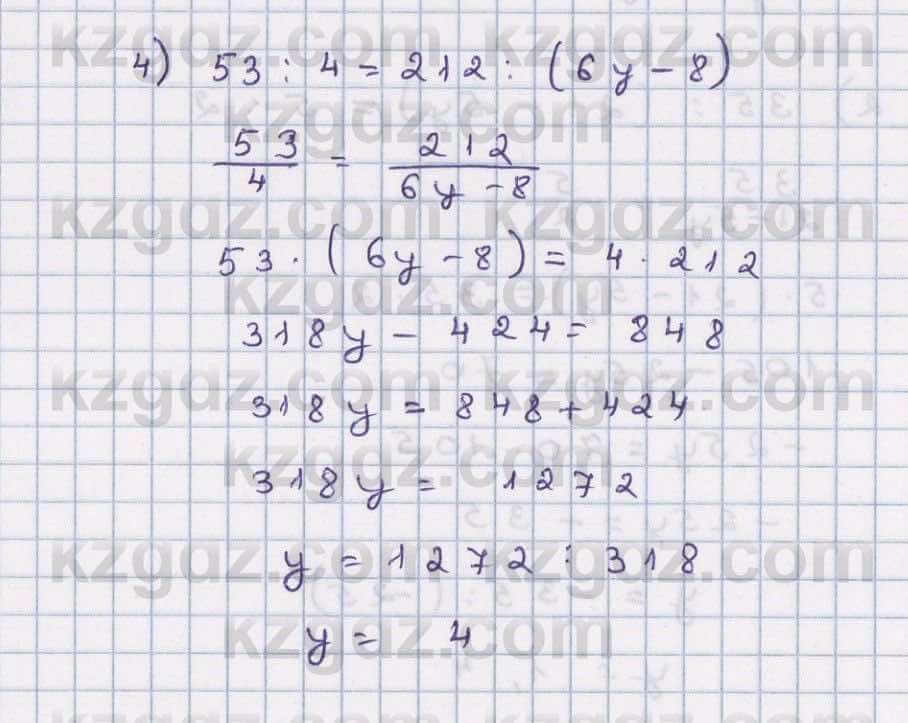 kzgdz.com kzgdz.com
4) 53 : 4 = 212 : (6y - 8)
kzgdz.com
53/4 = 212/(6y - 8)
kzgdz.com kzgdz.com
53 · (6y - 8) = 4 · 212
kzgdz.com
318y - 424 = 848
kzgdz.com kzgdz.com
318y = 848 + 424
kzgdz.com
318y = 1272
kzgdz.com kzgdz.com
y = 1272 : 318
kzgdz.com
y = 4